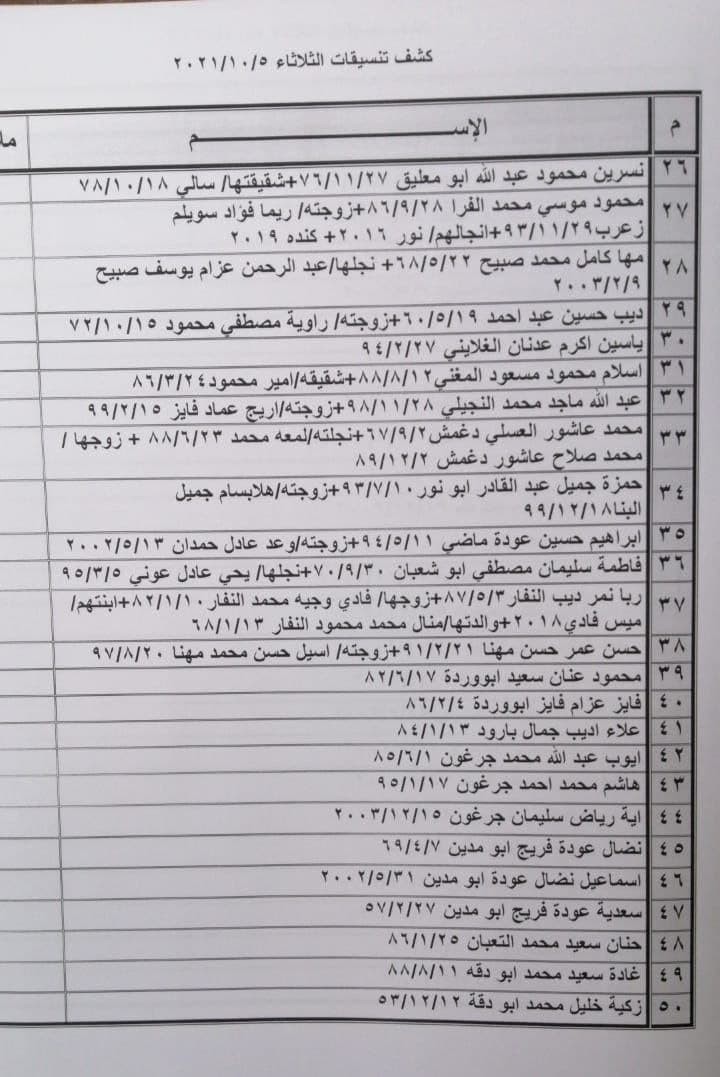 كشف تنسيقات الثلاثاء ٢٠٢١/١٠/٥
م الإســـــــــــــــــم
٢٦ نسرين محمود عبد الله ابو معليق ٧٦/١١/٢٧+شقيقتها/ سالي ٧٨/١٠/١٨
٢٧ محمود موسي محمد الفرا ٨٦/٩/٢٨+زوجته/ ريما فؤاد سويلم
زعرب٩٣/١١/٢٩+انجالهم/ نور ٢٠١٦+ كنده ٢٠١٩
٢٨ مها كامل محمد صبيح ٦٨/٥/٢٢+ نجلها/عبد الرحمن عزام يوسف صبيح
٢٠٠٣/٢/٩
٢٩ ديب حسين عبد احمد ٦٠/٥/١٩+زوجته/ راوية مصطفي محمود ٧٢/١٠/١٥
٣٠ ياسين اكرم عدنان الغلاييني ٩٤/٢/٢٧
٣١ اسلام محمود مسعود المغني٨٨/٨/١٢+شقيقه/امير محمود٨٦/٣/٢٤
٣٢ عبد الله ماجد محمد النجيلي ٩٨/١١/٢٨+زوجته/اريج عماد فايز ٩٩/٢/١٥
٣٣ محمد عاشور العسلي دغمش٦٧/٩/٢+نجلته/لمعه محمد ٨٨/٦/٢٣ + زوجها /
محمد صلاح عاشور دغمش ٨٩/١٢/٢
٣٤ حمزة جميل عبد القادر ابو نور٩٣/٧/١٠+زوجته/هلابسام جميل
البنا٩٩/١٢/١٨
٣٥ ابراهيم حسين عودة ماضي ٩٤/٥/١١+زوجته/وعد عادل حمدان ٢٠٠٢/٥/١٣
٣٦ فاطمة سليمان مصطفي ابو شعبان ٧٠/٩/٣٠+نجلها/ يحي عادل عوني ٩٥/٣/٥
٣٧ ربا نمر ديب النفار٨٧/٥/٣+زوجها/ فادي وجيه محمد النفار٨٢/١/١٠+ابنتهم/
ميس فادي٢٠١٨+والدتها/منال محمد محمود النفار ٦٨/١/١٣
٣٨ حسن عمر حسن مهنا ٩١/٢/٢١+زوجته/ اسيل حسن محمد مهنا ٩٧/٨/٢٠
٣٩ محمود عنان سعيد ابووردة ٨٢/٦/١٧
٤٠ فايز عزام فايز ابووردة ٨٦/٢/٤
٤١ علاء اديب جمال بارود ٨٤/١/١٣
٤٢ ايوب عبد الله محمد جرغون ٨٥/٦/١
٤٣ هاشم محمد احمد جرغون ٩٥/١/١٧
٤٤ اية رياض سليمان جرغون ٢٠٠٣/١٢/١٥
٤٥ نضال عودة فريج ابو مدين ٦٩/٤/٧
٤٦ اسماعيل نضال عودة ابو مدين ٢٠٠٢/٥/٣١
٤٧ سعدية عودة فريج ابو مدين ٥٧/٢/٢٧
٤٨ حنان سعيد محمد التعبان ٨٦/١/٢٥
٤٩ غادة سعيد محمد ابو دقه ٨٨/٨/١١
٥٠ زكية خليل محمد ابو دقة ٥٣/١٢/١٢